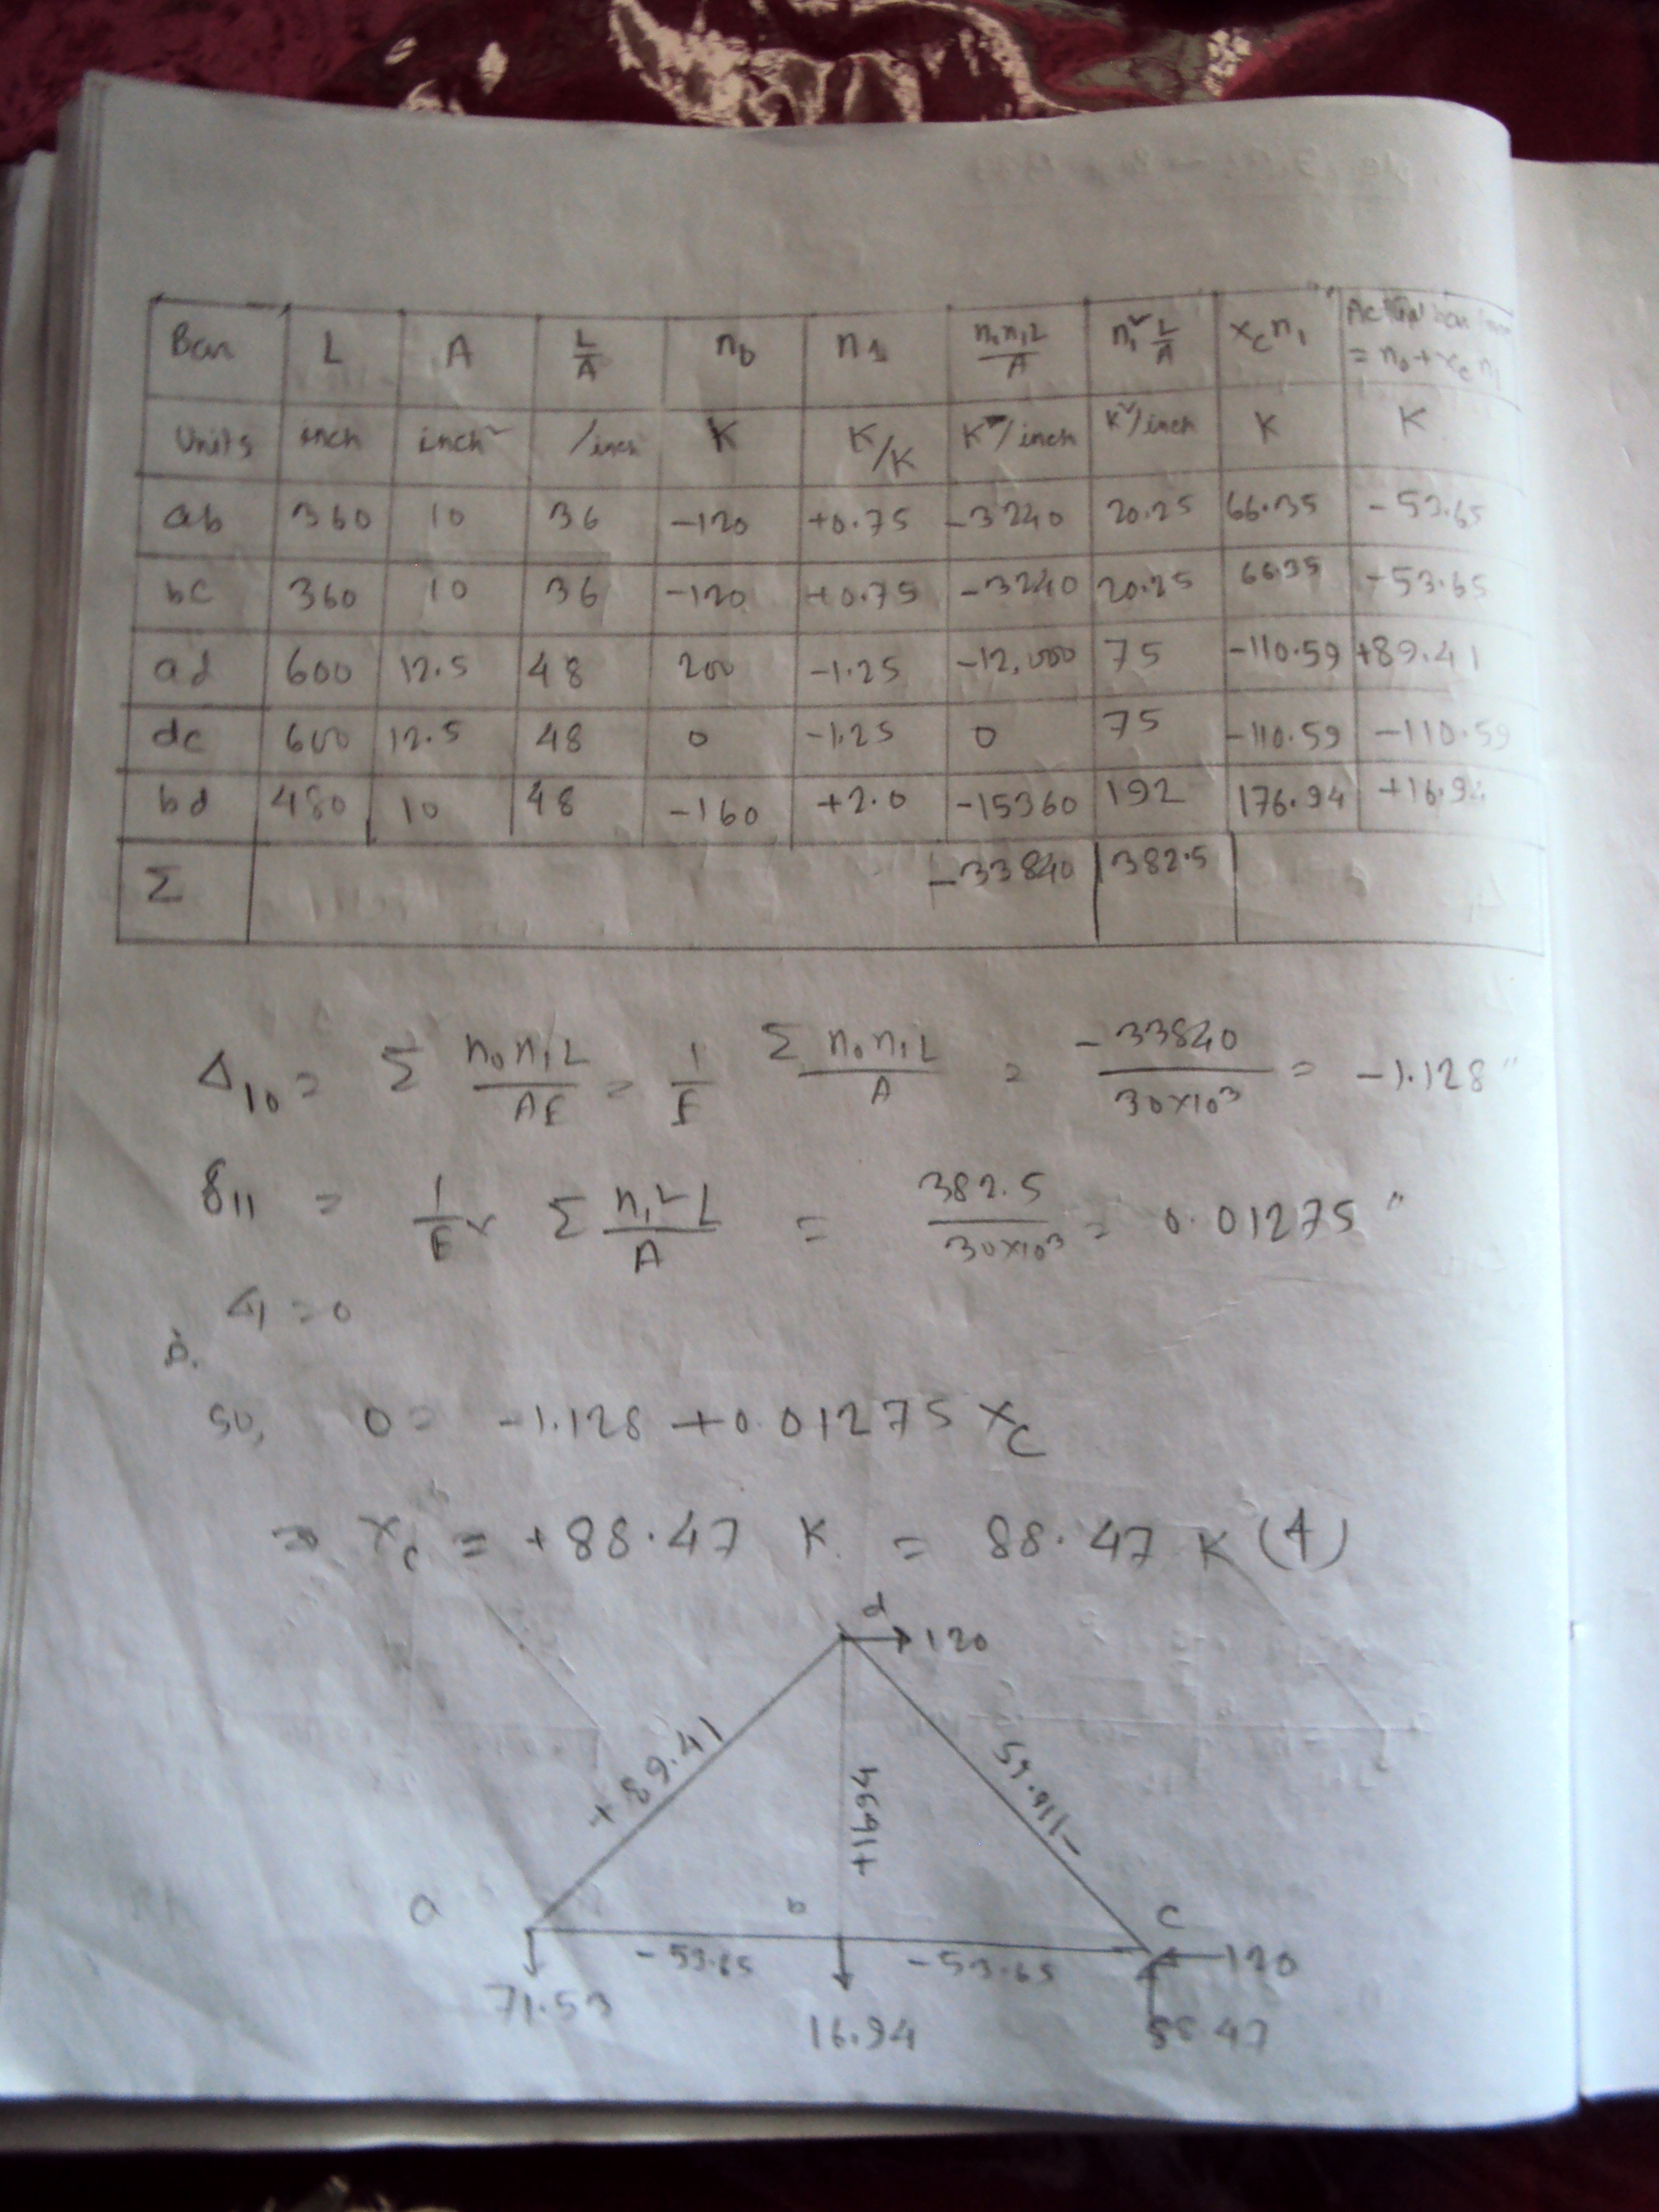 Bar L A L/A n0 n1 n0n1L/A n1²L/A xc n1 Actual bar force = n0 + xc n1
Units inch inch² /inch K K/K K²/inch K²/inch K K
ab 360 10 36 -120 +0.75 -3240 20.25 66.35 -53.65
bc 360 10 36 -120 +0.75 -3240 20.25 66.35 -53.65
ad 600 12.5 48 200 -1.25 -12,000 75 -110.59 +89.41
dc 600 12.5 48 0 -1.25 0 75 -110.59 -110.59
bd 480 10 48 -160 +2.0 -15360 192 176.94 +16.94
Σ -33840 382.5
Δ10 = Σ n0n1L/AE = 1/E Σ n0n1L/A = -33840/30×10³ = -1.128"
δ11 = 1/E × Σ n1²L/A = 382.5/30×10³ = 0.01275"
Δ1 = 0
so, 0 = -1.128 + 0.01275 xc
⇒ xc = +88.47 K = 88.47 K (↑)
d
120
+89.41
+16.94
-110.59
a
b
c
-53.65
-53.65
120
71.53
16.94
88.47